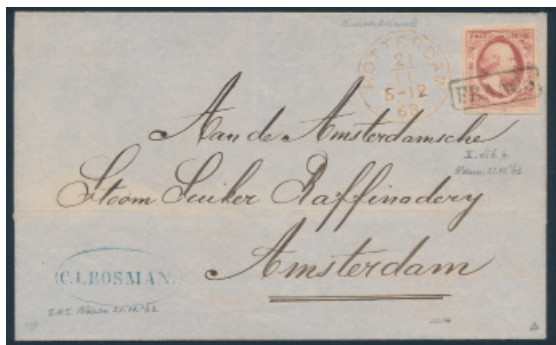 ROTTERDAM
21
5-12
63
FRANCO
Aan de Amsterdamsche
Stoom Suiker Raffinadery
Amsterdam
C.I. BOSMAN.